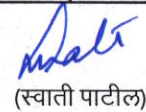 (स्वाती पाटील)